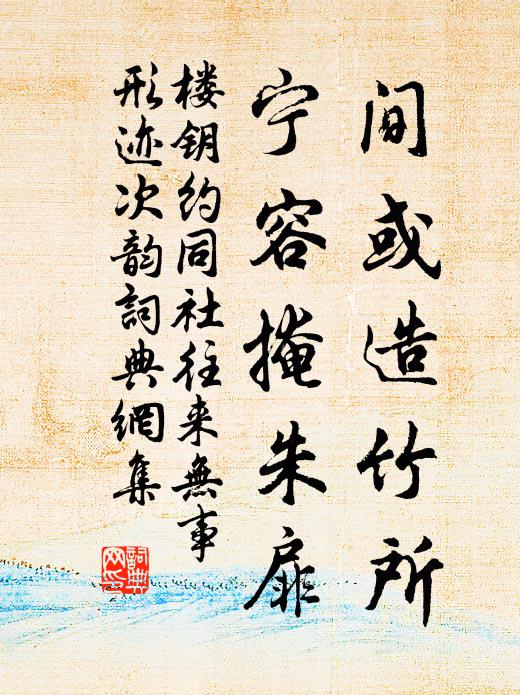 间或造竹所
宁容掩朱扉
楼钥约同社往来無事
形迹次韵詞典網集
詞典网印